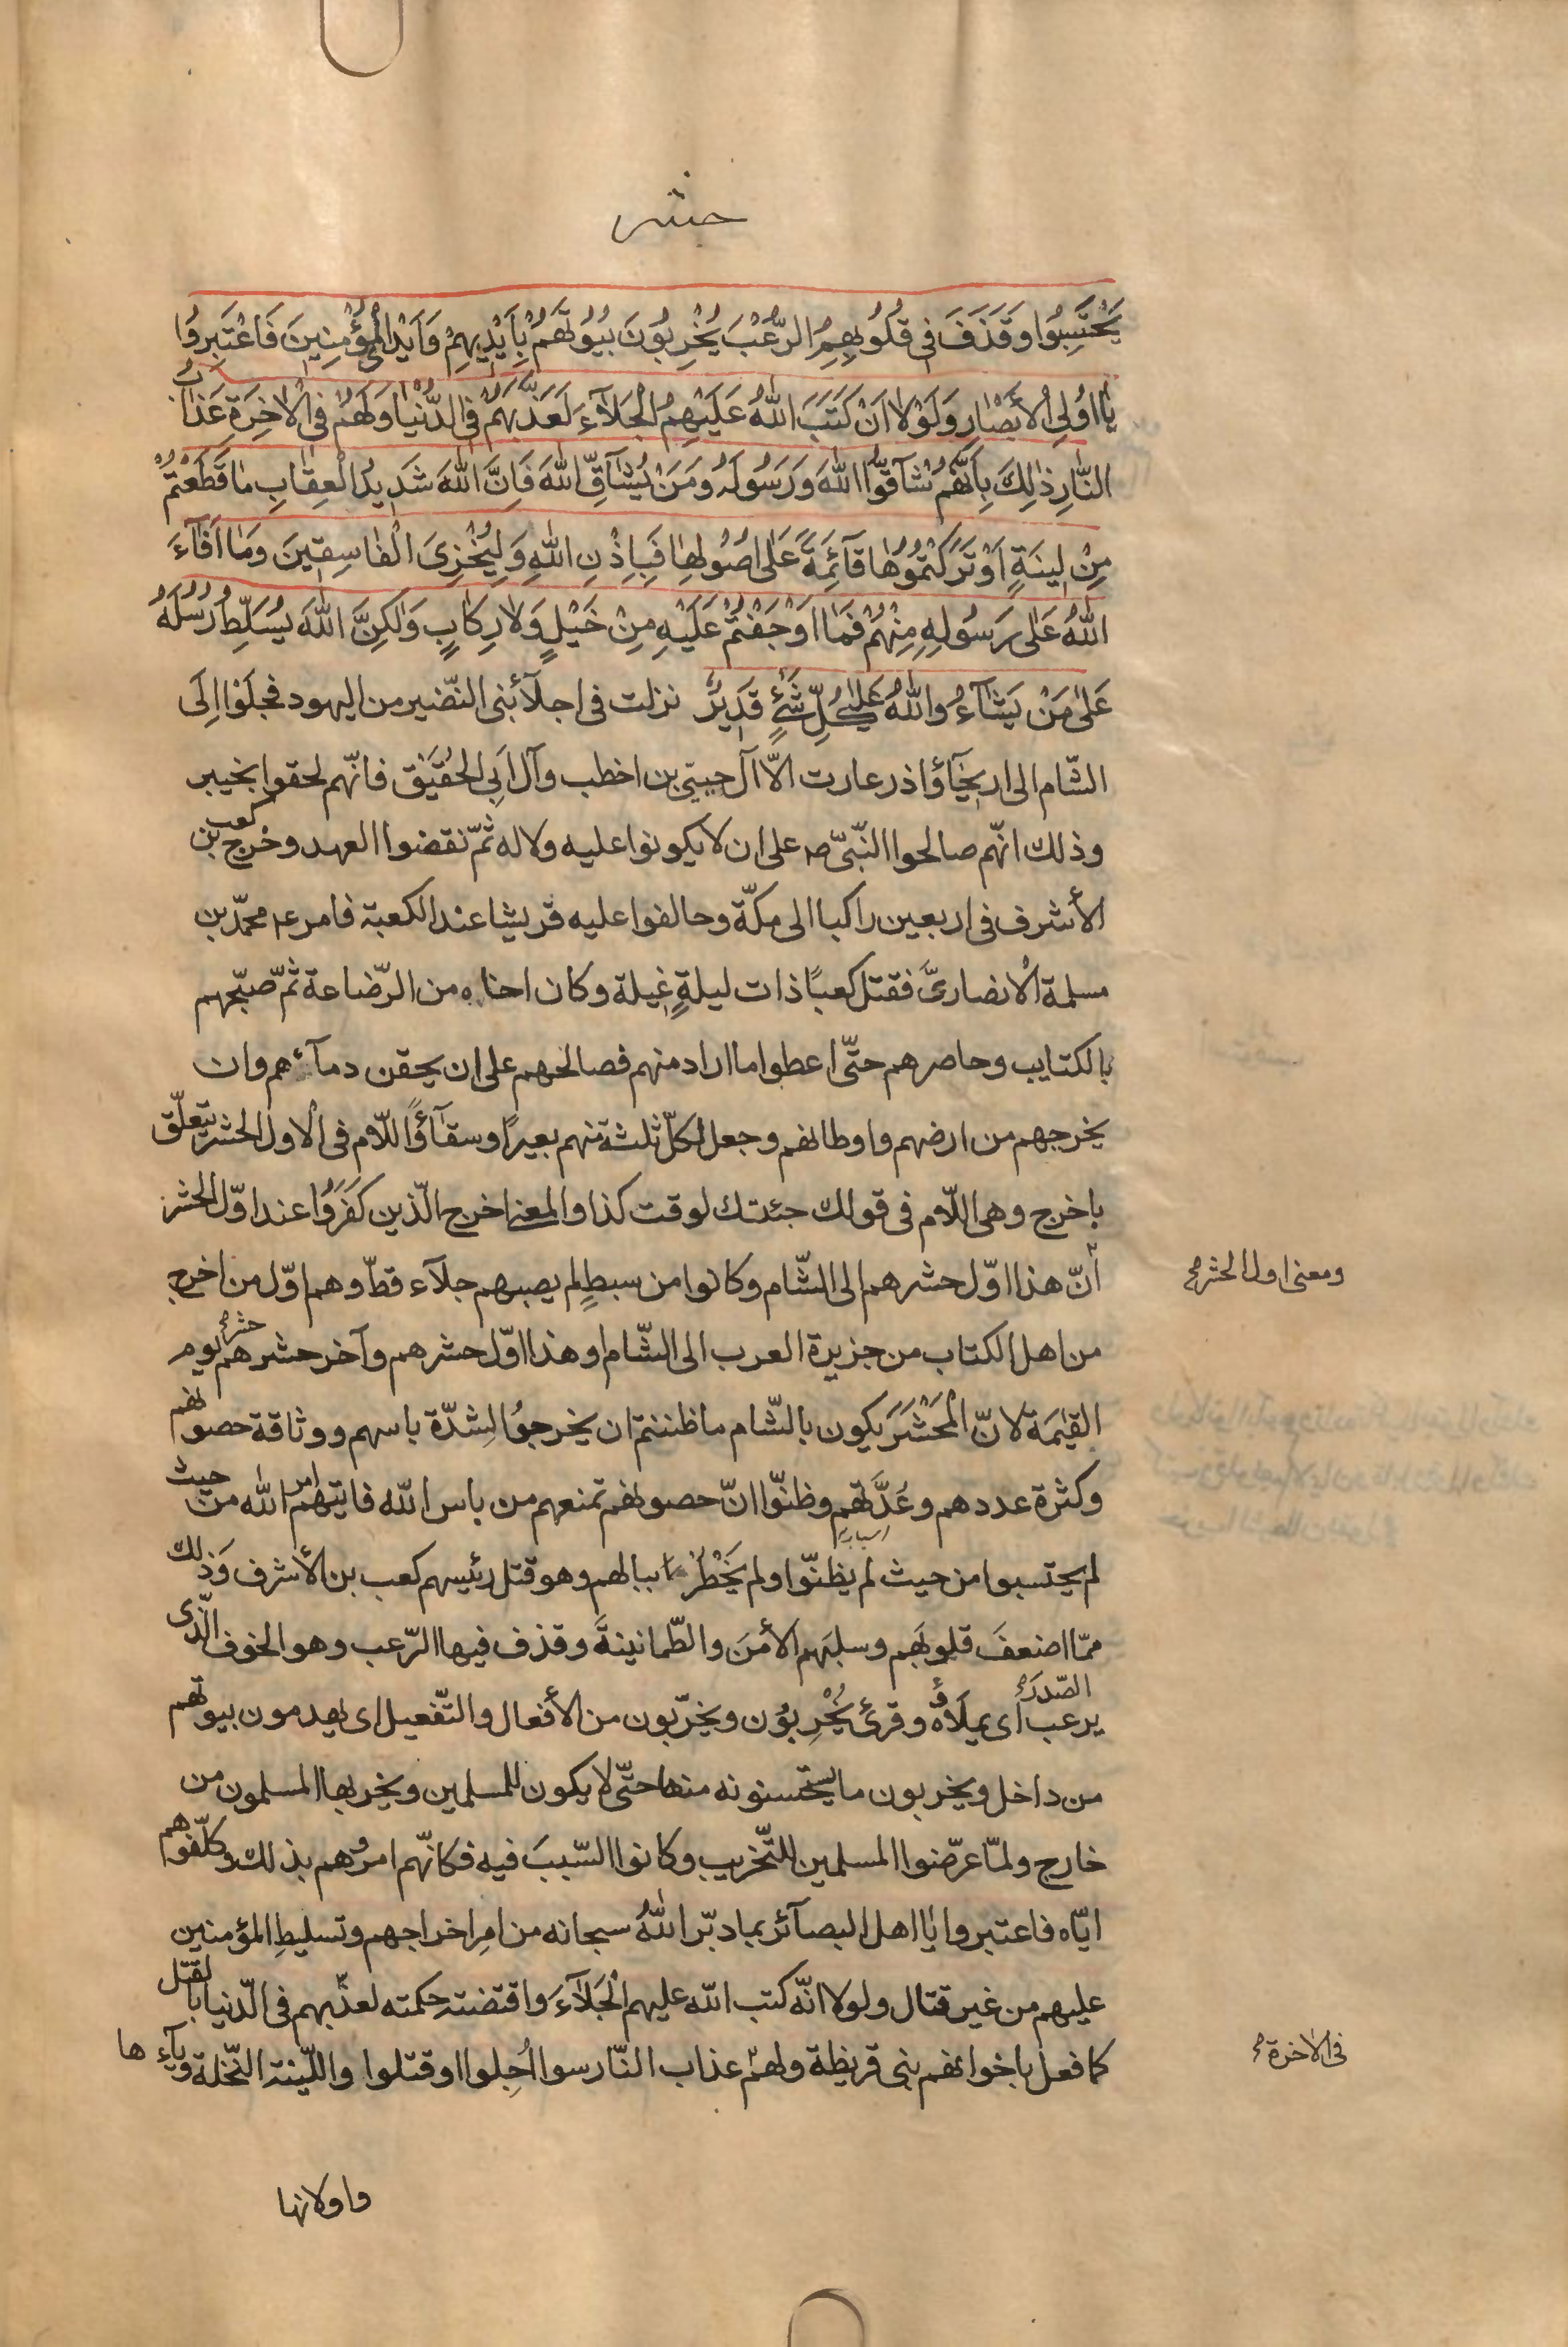 حشر
يَحْتَسِبُوا وَقَذَفَ فى قُلُوبِهِمُ الرُّعْبَ يُخْرِبُونَ بُيُوتَهُمْ بِاَيْدِيهِمْ وَاَيْدِى الْمُؤْمِنِينَ فَاعْتَبِرُوا
يٰا اُولِى الْأَبْصٰارِ وَلَوْلٰا اَنْ كَتَبَ اللّٰهُ عَلَيْهِمُ الْجَلٰآءَ لَعَذَّبَهُمْ فِى الدُّنْيٰا وَلَهُمْ فِى الْاٰخِرَةِ عَذٰابُ
النّٰارِ ذٰلِكَ بِاَنَّهُمْ شٰآقُّوا اللّٰهَ وَرَسُولَهُ وَمَنْ يُشٰآقِّ اللّٰهَ فَاِنَّ اللّٰهَ شَدِيدُ الْعِقٰابِ مٰا قَطَعْتُمْ
مِنْ لِينَةٍ اَوْ تَرَكْتُمُوهٰا قٰآئِمَةً عَلٰى اُصُولِهٰا فَبِاِذْنِ اللّٰهِ وَلِيُخْزِىَ الْفٰاسِقِينَ وَمٰا اَفٰآءَ
اللّٰهُ عَلٰى رَسُولِهِ مِنْهُمْ فَمٰا اَوْجَفْتُمْ عَلَيْهِ مِنْ خَيْلٍ وَلٰا رِكٰابٍ وَلٰكِنَّ اللّٰهَ يُسَلِّطُ رُسُلَهُ
عَلٰى مَنْ يَشٰآءُ وَاللّٰهُ عَلٰى كُلِّ شَىْءٍ قَدِيرٌ نزلت فى اجلآء بنى النّضير من اليهود فجلَوْا اِلَى
الشّام الى اريحَآؤ اذرعات الّا آل حيىّ بن اخطب وآل اَبِى الحُقَيْق فانّهم لحقوا بخيبر
وذلك انّهم صالحوا النّبىّ ص على ان لا يكونوا عليه ولا له ثمّ نقضوا العهد وخرج كعب بن
الأشرف فى اربعين راكبا الى مكّة وحالفوا عليه قريشا عند الكعبة فامر ع محمّد بن
مسلمة الأنصارىَّ فقتل كعبًا ذات ليلةٍ غِيلة وكان اخاه من الرّضاعة ثمّ صبّحهم
بالكتايب وحاصرهم حتّى اعطوا ما اراد منهم فصالحهم على ان يحقن دمآءهم وان
يخرجهم من ارضهم واوطانهم وجعل لكلّ ثلثة منهم بعيرًا وسقآؤًا اللّام فى لاول الحشر يتعلّق
باخرج وهى اللّام فى قولك جئتك لوقت كذا والمعنى اخرج الّذين كَفَرُوا عند اوّل الحشر
ومعنى اول الحشر
أنّ هذا اوّل حشرهم الى الشّام وكانوا من سبطٍ لم يصبهم جلآء قطّ وهم اوّل من اخرج
من اهل الكتاب من جزيرة العرب الى الشّام او هذا اوّل حشرهم وآخر حشرهم حشر يوم
القيٰمَة لانّ الْمَحْشَرَ يكون بالشّام ما ظننتم ان يخرجوُا لِشدّة باسهم ووثاقة حصونهم
وكثرة عددهم وعُدَّتهم وظنّوا انّ حصونهم تمنعهم من باس الله فاتيهم امر الله من حيث
لم يحتسبوا من حيث لم يظنّوا ولم يَخْطُرْ ببالهم وهو قتل رئيسهم كعب بن الأشرف وَذلك
ممّا اضعفَ قلوبَهم وسلبَهم الأمْنَ والطّمانينةَ وقذف فيها الرّعب وهو الخوف الّذى
يرعب الصّدر أى يملَاؤُه وقرئ يُخْرِبوُن ويخرّبون من الأفعال والتّفعيل اى يهدمون بيوتهم
من داخل ويخربون ما يستحسنونه منها حتّى لا يكون للمسلمين ويخربها المسلمون من
خارج ولمّا عرّضوا المسلمين للتّخريب وكانوا السّببَ فيه فكانّهم امروهم بذلك وكلّفوهم
ايّاه فاعتبروا يٰا اهل البصآئر بما دبّر اللّٰهُ سبحانه من امِر اخراجهم وتسليطِ المؤمنين
عليهم من غير قتال ولولا انّه كتب الله عليهم الْجَلآءَ واقتضته حكمته لعذّبهم فى الدّنيا بالقتل
فى الاخرة
كما فعل باخوانهم بنى قريظة ولهم عذاب النّار سوا اُجلوا او قتلوا واللّينة النّخلة ويآءها
واولانها